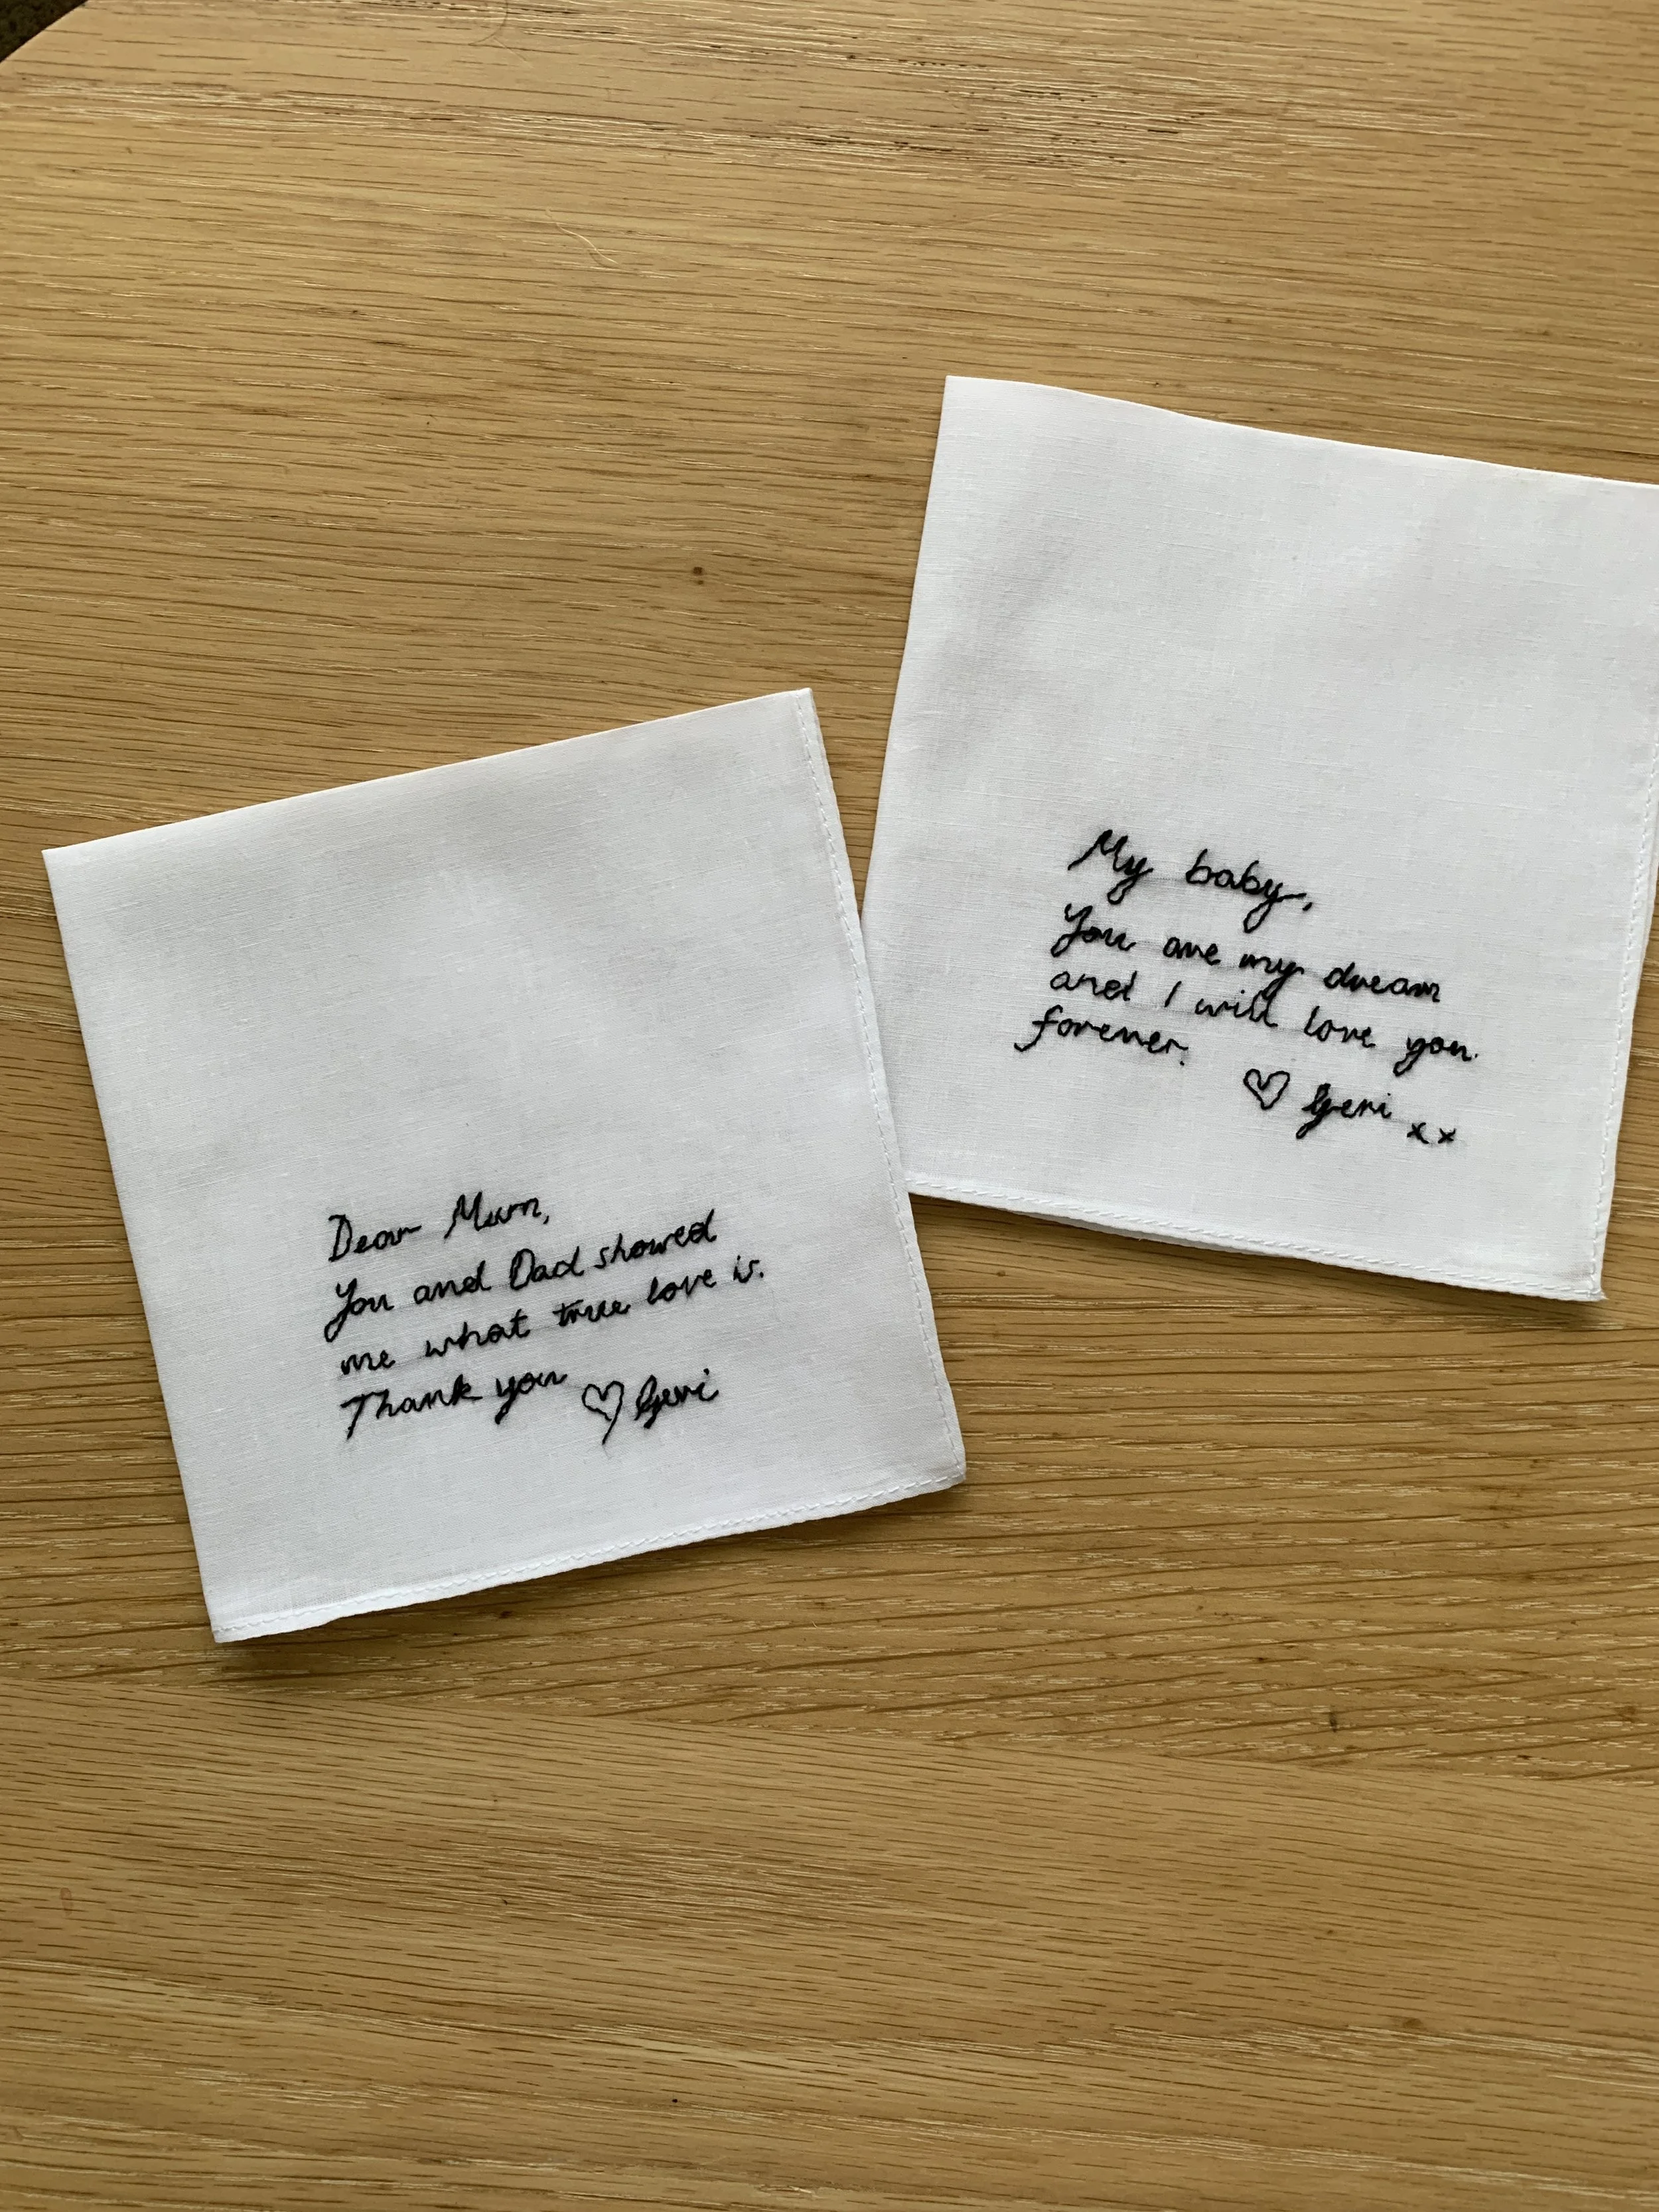 Dear Mum,
You and Dad showed
me what true love is.
Thank you ♡ Geri
My baby,
You are my dream
and I will love you
forever.
♡ Geri xx